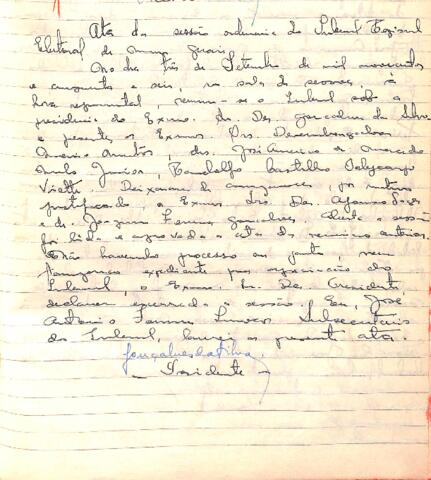 Ata da sessão ordinaria do Tribunal Regional
Eleitoral de Minas Gerais
Ao dia três de Setembro de mil novecentos
e cinquenta e seis, na sala de sessões, à
hora regimental, reuniu-se o Tribunal sob a
presidencia do Exmo. Sr. Des. Gonçalves da Silva
e presentes os Exmos. Srs. Desembargadores
drs. José Americo de Macedo
Junior, Randolfo Castilho
Deixaram de comparecer, por motivo
justificado, o Exmo Sro Des. Afonso
e dr. Joaquim Gonçalves. Aberta a sessão
foi lida e aprovada a ata da reunião anterior.
Não havendo processo em pauta, nem
expediente para organização do
Tribunal, o Exmo. Sr. Des. Presidente
declarou encerrada a sessão. Eu, José
Antonio Subsecretario
do Tribunal, lavrei a presente ata.
Gonçalves da Silva.
- Presidente -